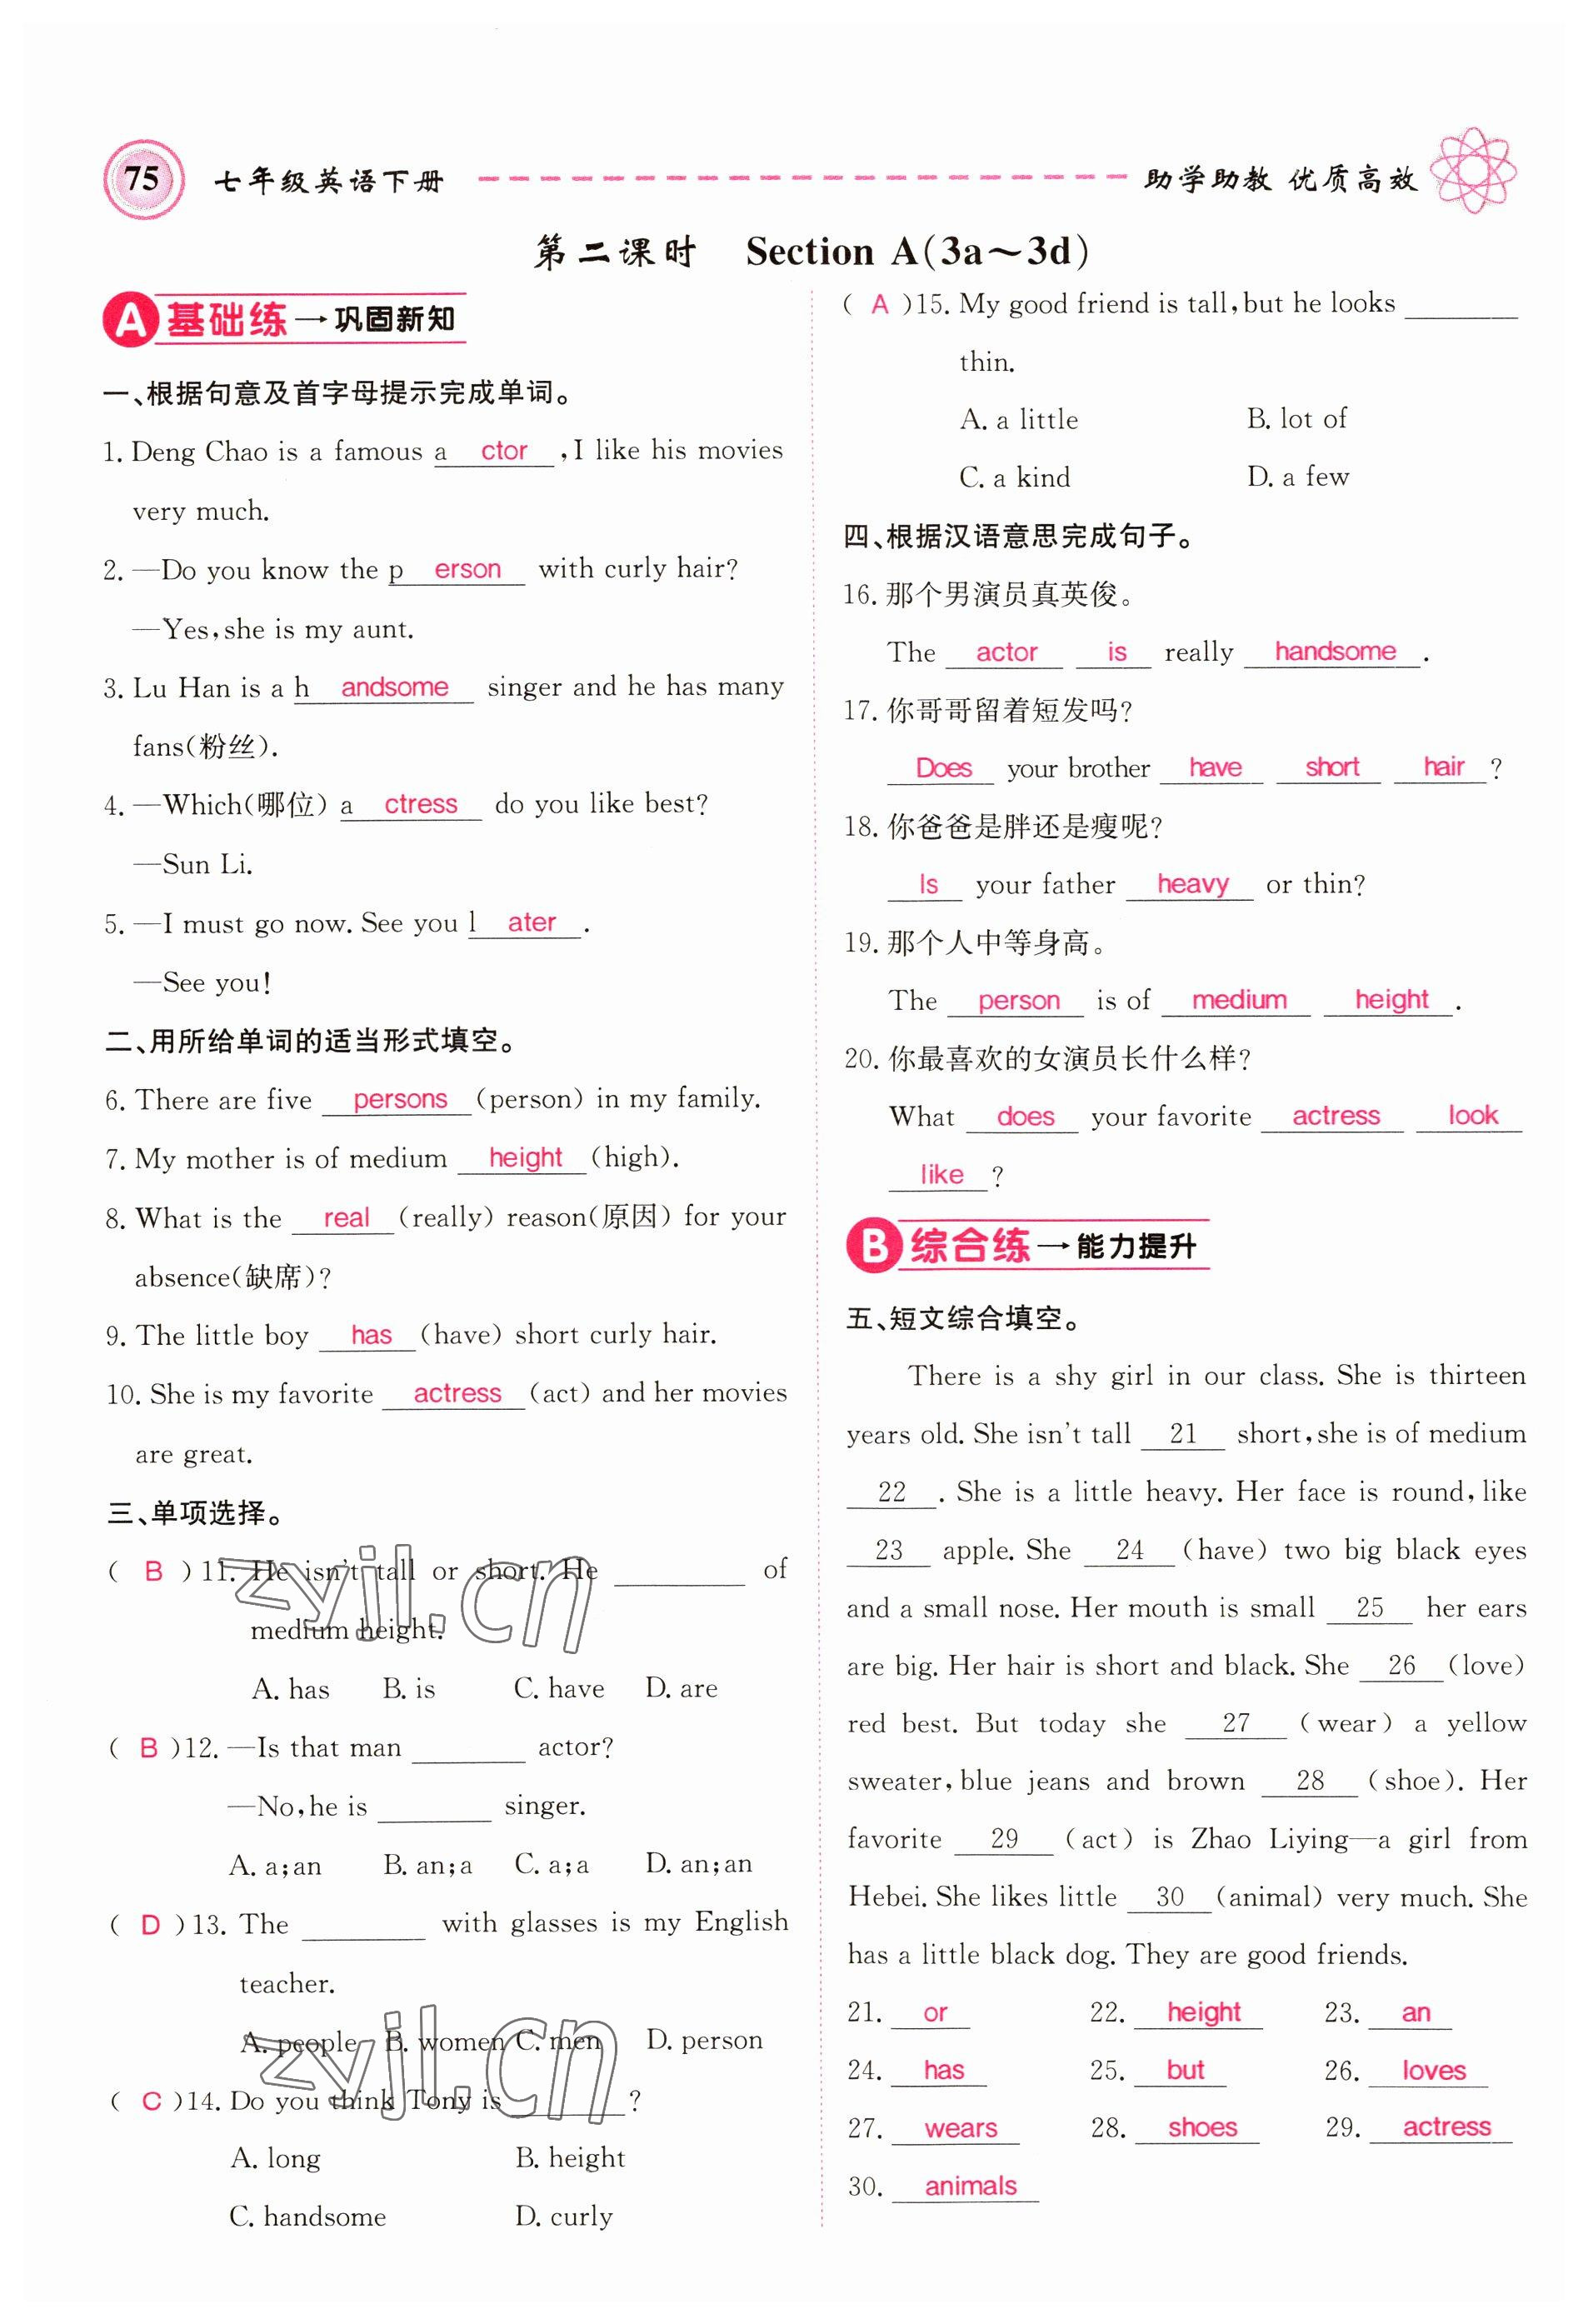 75 七年级英语下册 助学助教 优质高效
第二课时 Section A(3a～3d)
A 基础练→巩固新知
一、根据句意及首字母提示完成单词。
1. Deng Chao is a famous a ctor ,I like his movies
very much.
2. —Do you know the p erson with curly hair?
—Yes,she is my aunt.
3. Lu Han is a h andsome singer and he has many
fans(粉丝).
4. —Which(哪位) a ctress do you like best?
—Sun Li.
5. —I must go now. See you l ater .
—See you!
二、用所给单词的适当形式填空。
6. There are five persons (person) in my family.
7. My mother is of medium height (high).
8. What is the real (really) reason(原因) for your
absence(缺席)?
9. The little boy has (have) short curly hair.
10. She is my favorite actress (act) and her movies
are great.
三、单项选择。
( B )11. He isn't tall or short. He ________ of
medium height.
A. has B. is C. have D. are
( B )12. —Is that man ________ actor?
—No,he is ________ singer.
A. a;an B. an;a C. a;a D. an;an
( D )13. The ________ with glasses is my English
teacher.
A. people B. women C. men D. person
( C )14. Do you think Tony is ________?
A. long B. height
C. handsome D. curly
( A )15. My good friend is tall,but he looks ________
thin.
A. a little B. lot of
C. a kind D. a few
四、根据汉语意思完成句子。
16. 那个男演员真英俊。
The actor is really handsome .
17. 你哥哥留着短发吗?
Does your brother have short hair ?
18. 你爸爸是胖还是瘦呢?
Is your father heavy or thin?
19. 那个人中等身高。
The person is of medium height .
20. 你最喜欢的女演员长什么样?
What does your favorite actress look
like ?
B 综合练→能力提升
五、短文综合填空。
There is a shy girl in our class. She is thirteen
years old. She isn't tall 21 short,she is of medium
22 . She is a little heavy. Her face is round,like
23 apple. She 24 (have) two big black eyes
and a small nose. Her mouth is small 25 her ears
are big. Her hair is short and black. She 26 (love)
red best. But today she 27 (wear) a yellow
sweater,blue jeans and brown 28 (shoe). Her
favorite 29 (act) is Zhao Liying—a girl from
Hebei. She likes little 30 (animal) very much. She
has a little black dog. They are good friends.
21. or 22. height 23. an
24. has 25. but 26. loves
27. wears 28. shoes 29. actress
30. animals
zyjl.cn
zyjl.cn